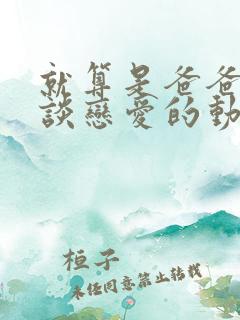 就算是爸爸
談戀愛的動
桓子
未經同意禁止轉載